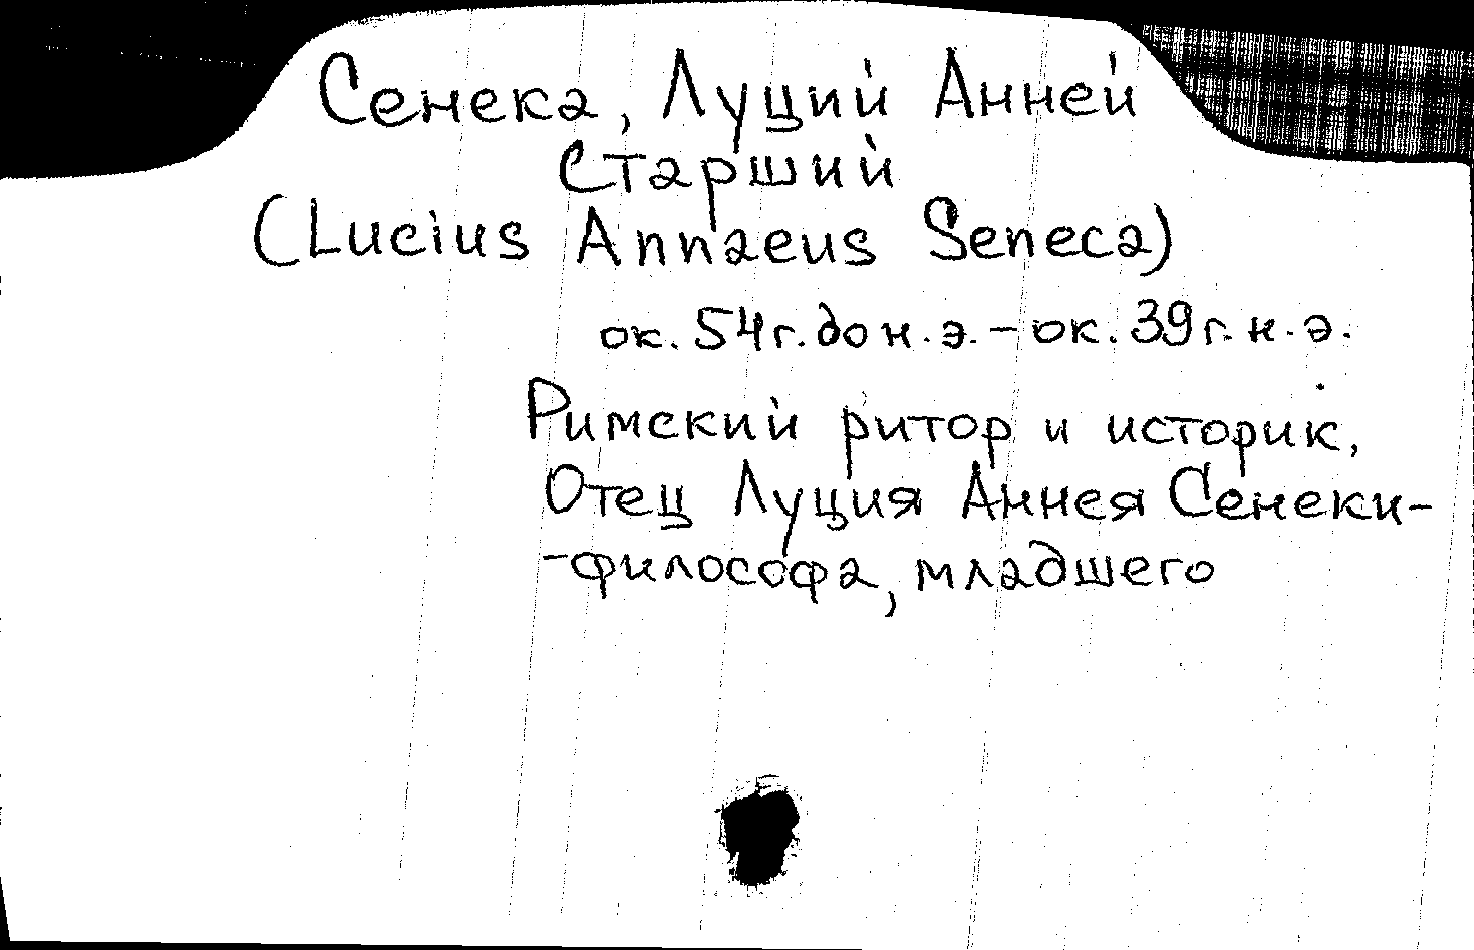 Сенека, Луций Анней
Старший
(Lucius Annaeus Seneca)
ок. 54 г. до н. э. – ок. 39 г. н. э.
Римский ритор и историк,
Отец Луция Аннея Сенеки-
-философа, младшего